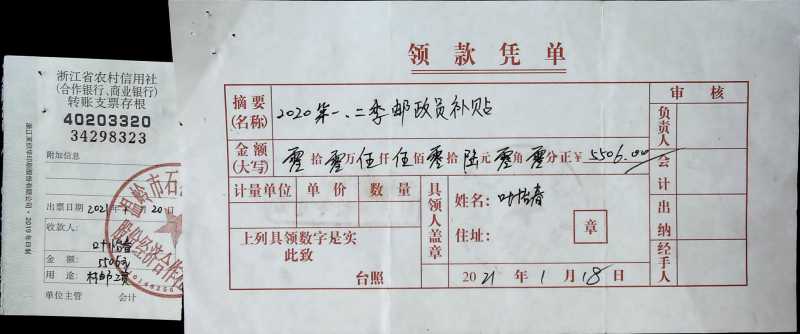 浙江省农村信用社
(合作银行、商业银行)
转账支票存根
40203320
34298323
附加信息
出票日期 2021年1月20日
收款人:
金额: 5506元
用途:
单位主管 会计
领款凭单
摘要(名称) 2020第一、二季邮政员补贴
金额(大写) 零拾零万伍仟伍佰零拾陆元零角零分正¥ 5506.00
计量单位 单价 数量
上列具领数字是实
此致
台照
具领人盖章
姓名:
住址:
章
2021年1月18日
审核
负责人
会计
出纳
经手人